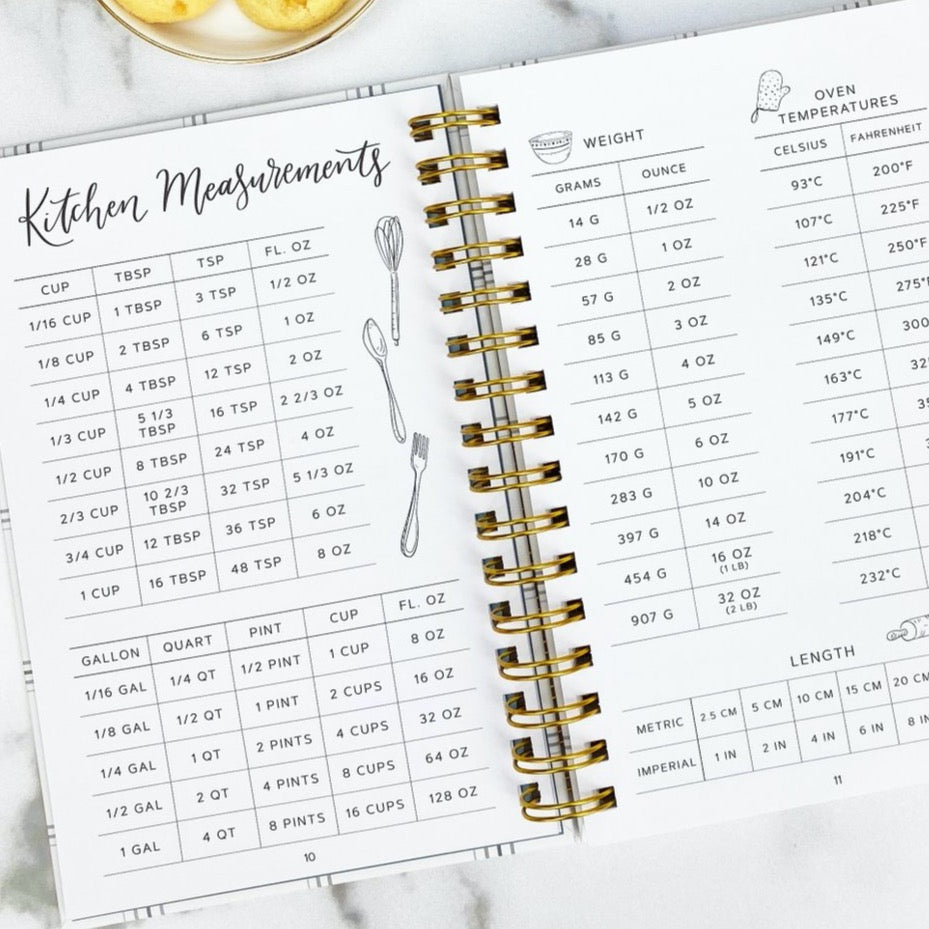 Kitchen Measurements
CUP TBSP TSP FL. OZ
1/16 CUP 1 TBSP 3 TSP 1/2 OZ
1/8 CUP 2 TBSP 6 TSP 1 OZ
1/4 CUP 4 TBSP 12 TSP 2 OZ
1/3 CUP 5 1/3 TBSP 16 TSP 2 2/3 OZ
1/2 CUP 8 TBSP 24 TSP 4 OZ
2/3 CUP 10 2/3 TBSP 32 TSP 5 1/3 OZ
3/4 CUP 12 TBSP 36 TSP 6 OZ
1 CUP 16 TBSP 48 TSP 8 OZ
GALLON QUART PINT CUP FL. OZ
1/16 GAL 1/4 QT 1/2 PINT 1 CUP 8 OZ
1/8 GAL 1/2 QT 1 PINT 2 CUPS 16 OZ
1/4 GAL 1 QT 2 PINTS 4 CUPS 32 OZ
1/2 GAL 2 QT 4 PINTS 8 CUPS 64 OZ
1 GAL 4 QT 8 PINTS 16 CUPS 128 OZ
10
WEIGHT
GRAMS OUNCE
14 G 1/2 OZ
28 G 1 OZ
57 G 2 OZ
85 G 3 OZ
113 G 4 OZ
142 G 5 OZ
170 G 6 OZ
283 G 10 OZ
397 G 14 OZ
454 G 16 OZ (1 LB)
907 G 32 OZ (2 LB)
OVEN
TEMPERATURES
CELSIUS FAHRENHEIT
93°C 200°F
107°C 225°F
121°C 250°F
135°C 275°
149°C 300
163°C 32
177°C 35
191°C
204°C
218°C
232°C
LENGTH
METRIC 2.5 CM 5 CM 10 CM 15 CM 20 CM
IMPERIAL 1 IN 2 IN 4 IN 6 IN 8 IN
11